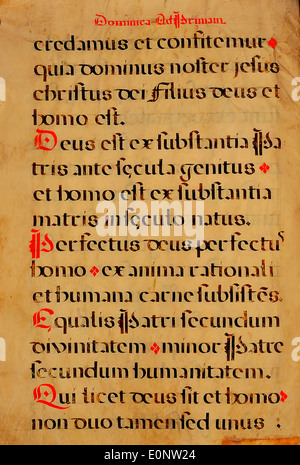 Dominica Ad Primam.
credamus et confitemur
quia dominus noster jesus
christus dei filius deus et
homo est.
Deus est ex substantia Pa
tris ante sęcula genitus
et homo est ex substantia
matris in sęculo natus.
Perfectus deus perfectus
homo ex anima rationali
et humana carne subsistēs.
Equalis Patri secundum
divinitatem minor Patre
secundum humanitatem.
Qui licet deus sit et homo
non duo tamen sed unus
alamy stock photo
E0NW24
www.alamy.com